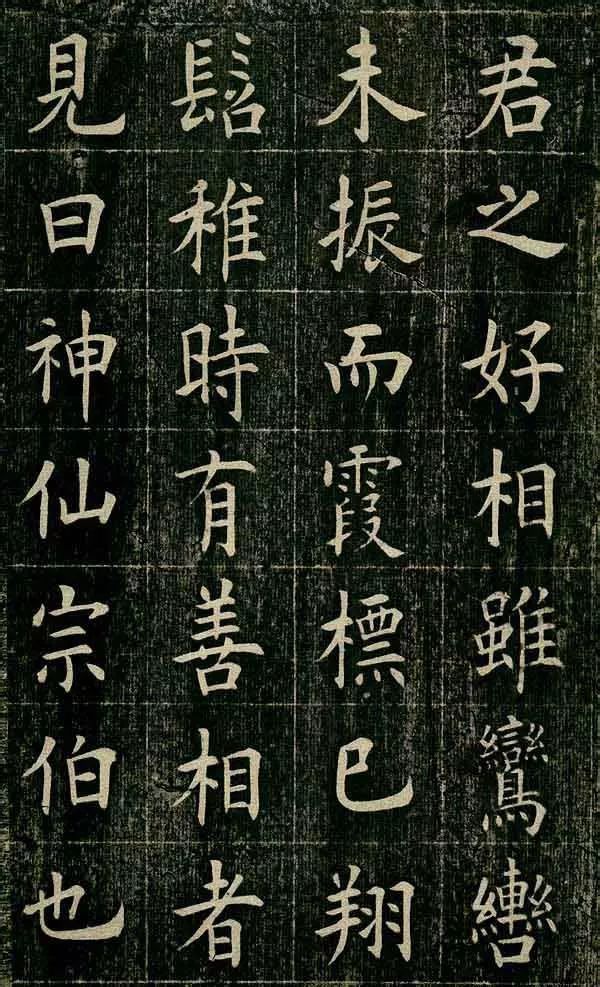 君之好相雖鸞轡
未振而霞標已翔
髫稚時有善相者
見曰神仙宗伯也